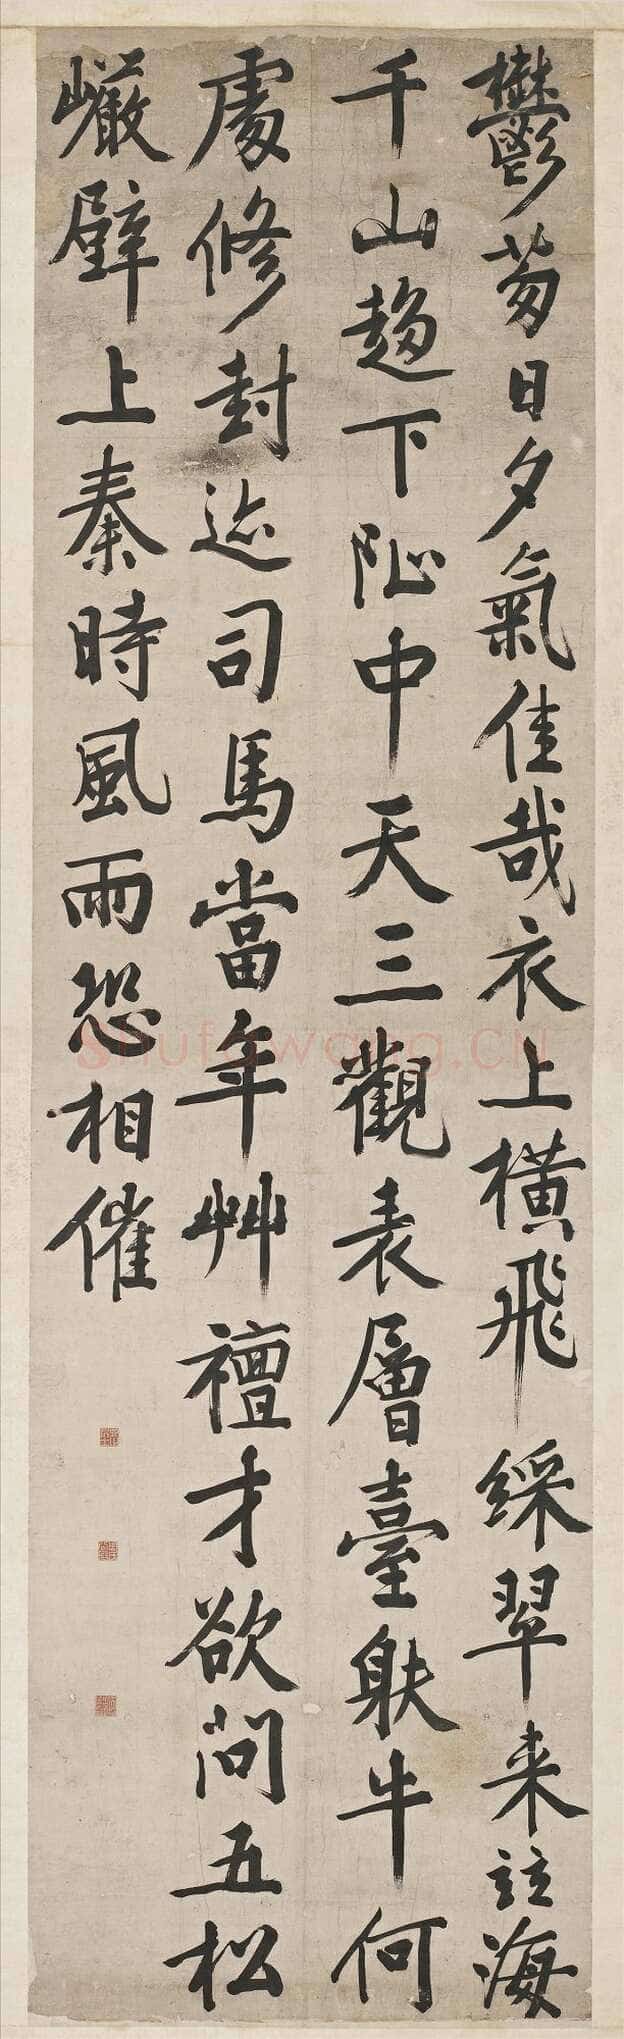 鬱蔥日夕氣佳哉衣上橫飛綵翠来註海
千山趨下阯中天三觀表層臺射牛何
處修封迹司馬當年艸禪才欲問五松
巖壁上秦時風雨恐相催
Shufawang.CN